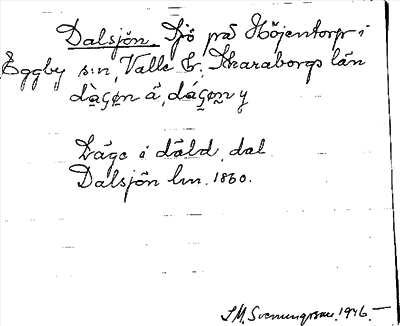 Dalsjön. Sjö på Höjentorp i
Eggby s:n, Valle h. Skaraborgs län
Läge i däld, dal
Dalsjön lm. 1860.
S.M. Svenungsson. 1946.